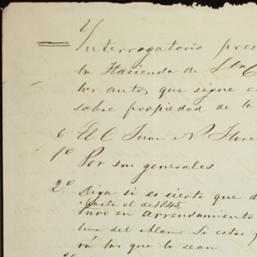 Y
Interrogatorio pres
la Hacienda de Sta C
los autos que sigue e
sobre propiedad de la
6 El C Juan N. Flore
1º Por sus generales
2º Diga si es cierto que d
hasta el de 1845
tuvo en arrendamiento
del Alamo Si estos
ra los que lo sean